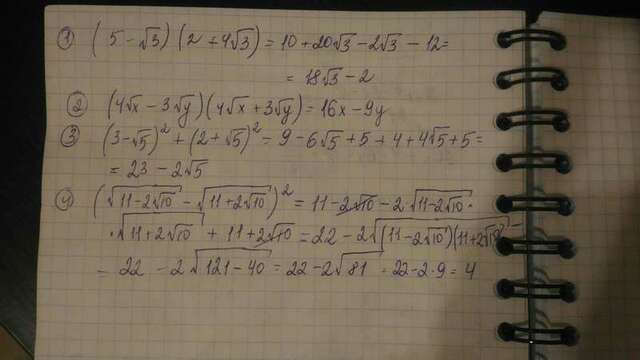 ① (5 - √3)(2 + 4√3) = 10 + 20√3 - 2√3 - 12 =
= 18√3 - 2
② (4√x - 3√y)(4√x + 3√y) = 16x - 9y
③ (3 - √5)² + (2 + √5)² = 9 - 6√5 + 5 + 4 + 4√5 + 5 =
= 23 - 2√5
④ (√(11 - 2√10) - √(11 + 2√10))² = 11 - 2√10 - 2·√(11 - 2√10) ·
· √(11 + 2√10) + 11 + 2√10 = 22 - 2√((11 - 2√10)(11 + 2√10)) =
= 22 - 2√(121 - 40) = 22 - 2√81 = 22 - 2·9 = 4